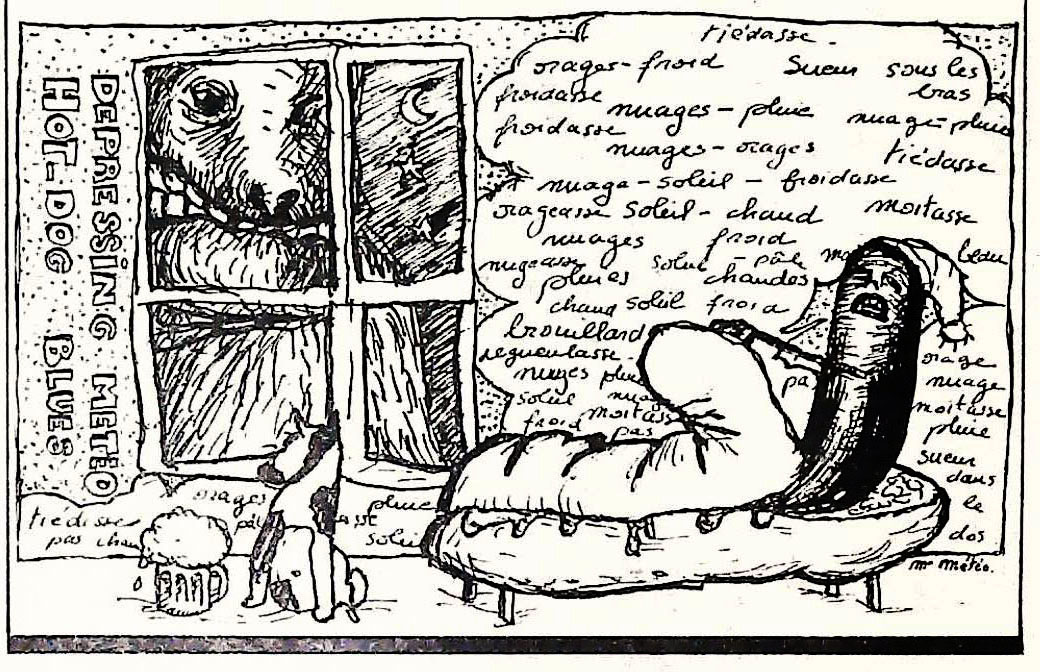 DEPRESSING METEO
HOT-DOG BLUES
tiédasse.
orages - froid
Sueur sous les
bras
froidasse
nuages - pluie
nuage - pluie
froidasse
nuages - orages
tiédasse
nuage - soleil - froidasse
orageasse soleil - chaud
moitasse
nuages froid
nugeasse soleil - pâle
beau
pluies chaudes
chaud soleil froid
brouillard
degueulasse.
nuages pluie
soleil
moitasse
froid pas
pa
orage
nuage
moitasse
pluie
sueur
dans
le
dos
orages
pluie
tiédasse
pas chau
pâl
ASSE
soleil
Mr Météo.